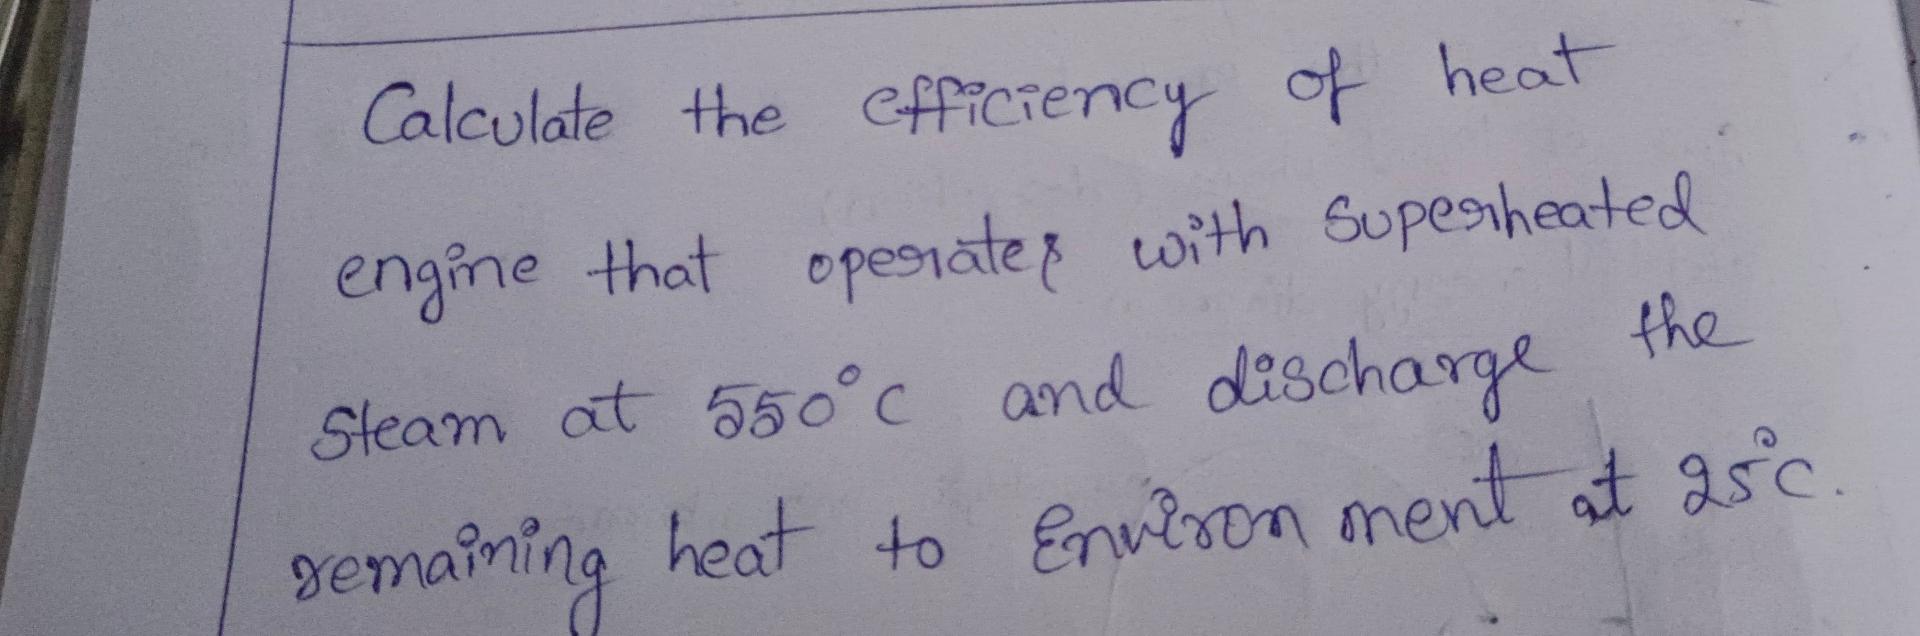 Calculate the efficiency of heat
engine that operates with superheated
steam at 550°c and discharge the
remaining heat to Environment at 25°c.